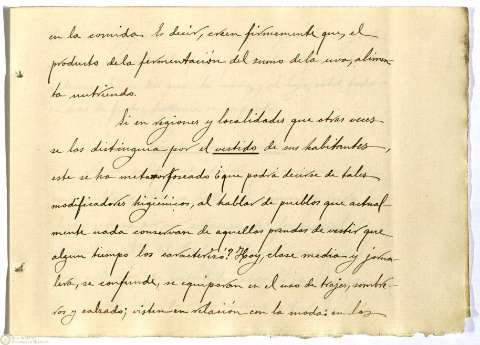 en la comida. Es decir, creen firmemente que, el
producto de la fermentación del sumo de la uva, alimen-
ta nutriendo.
Si en regiones y localidades que otras veces
se las distinguia por el vestido de sus habitantes,
este se ha metamorfoseado ¿que podrá decirse de tales
modificadores higiénicos, al hablar de pueblos que actual
mente nada conservan de aquellas prendas de vestir que
algun tiempo los caracterizó? Hoy, clase media y jorna-
lera, se confunde, se equiparan en el uso de trajes, sombre-
ros y calzado; visten en relación con la moda: en los